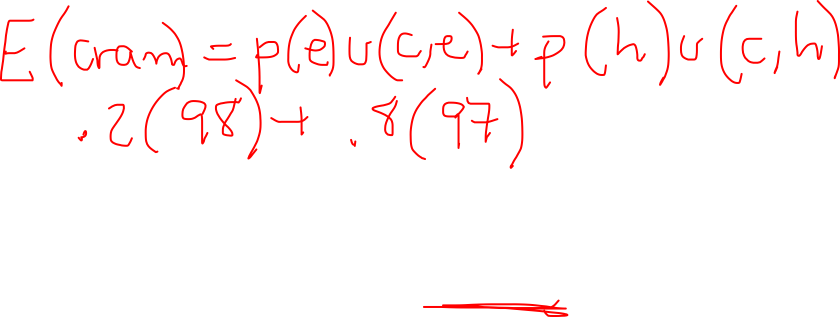 E(cram) = p(e)u(c,e) + p(h)u(c,h)
.2(98) + .8(97)